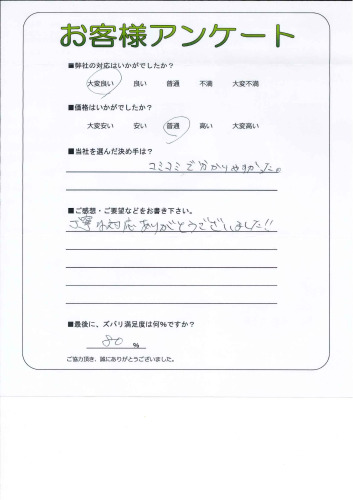 お客様アンケート
■弊社の対応はいかがでしたか?
大変良い 良い 普通 不満 大変不満
■価格はいかがでしたか?
大変安い 安い 普通 高い 大変高い
■当社を選んだ決め手は?
コミコミで分かりやすかった。
■ご感想・ご要望などをお書き下さい。
丁寧な対応ありがとうございました!!
■最後に、ズバリ満足度は何%ですか?
80 %
ご協力頂き、誠にありがとうございました。